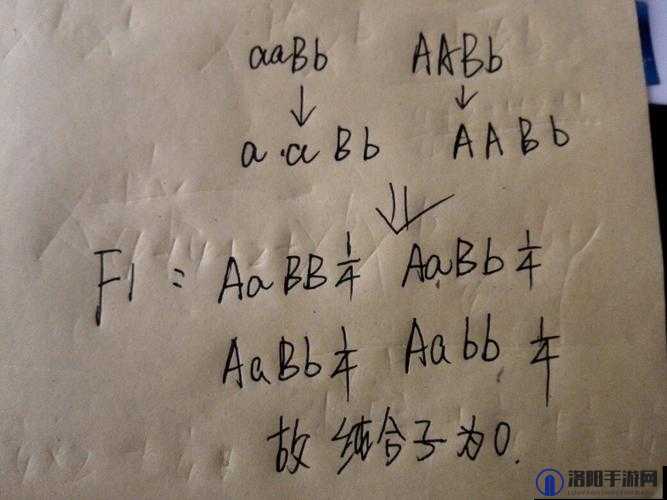 aaBb AABb
↓ ↓
a·aBb AABb
⇓
F1: AaBB 1/4 AaBb 1/4
AaBb 1/4 Aabb 1/4
故纯合子为0.
洛阳手游网